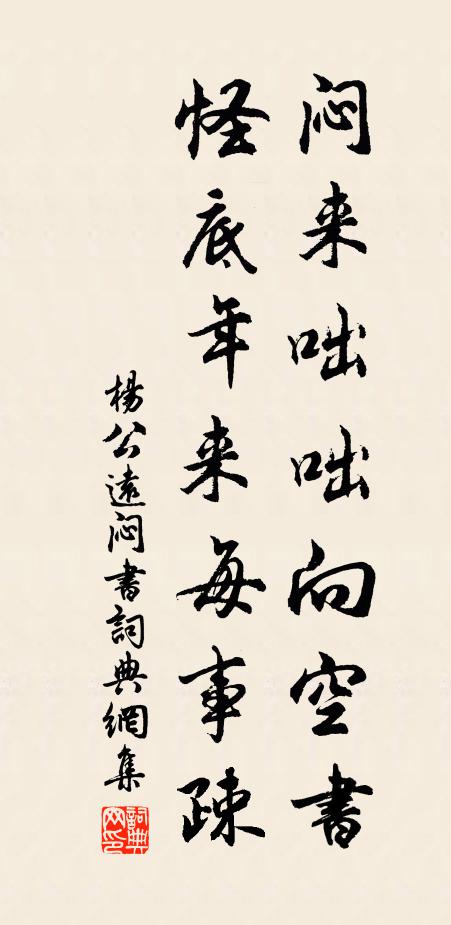 闷来咄咄向空書
怪底年来每事疎
楊公遠闷書詞典網集
詞典網印